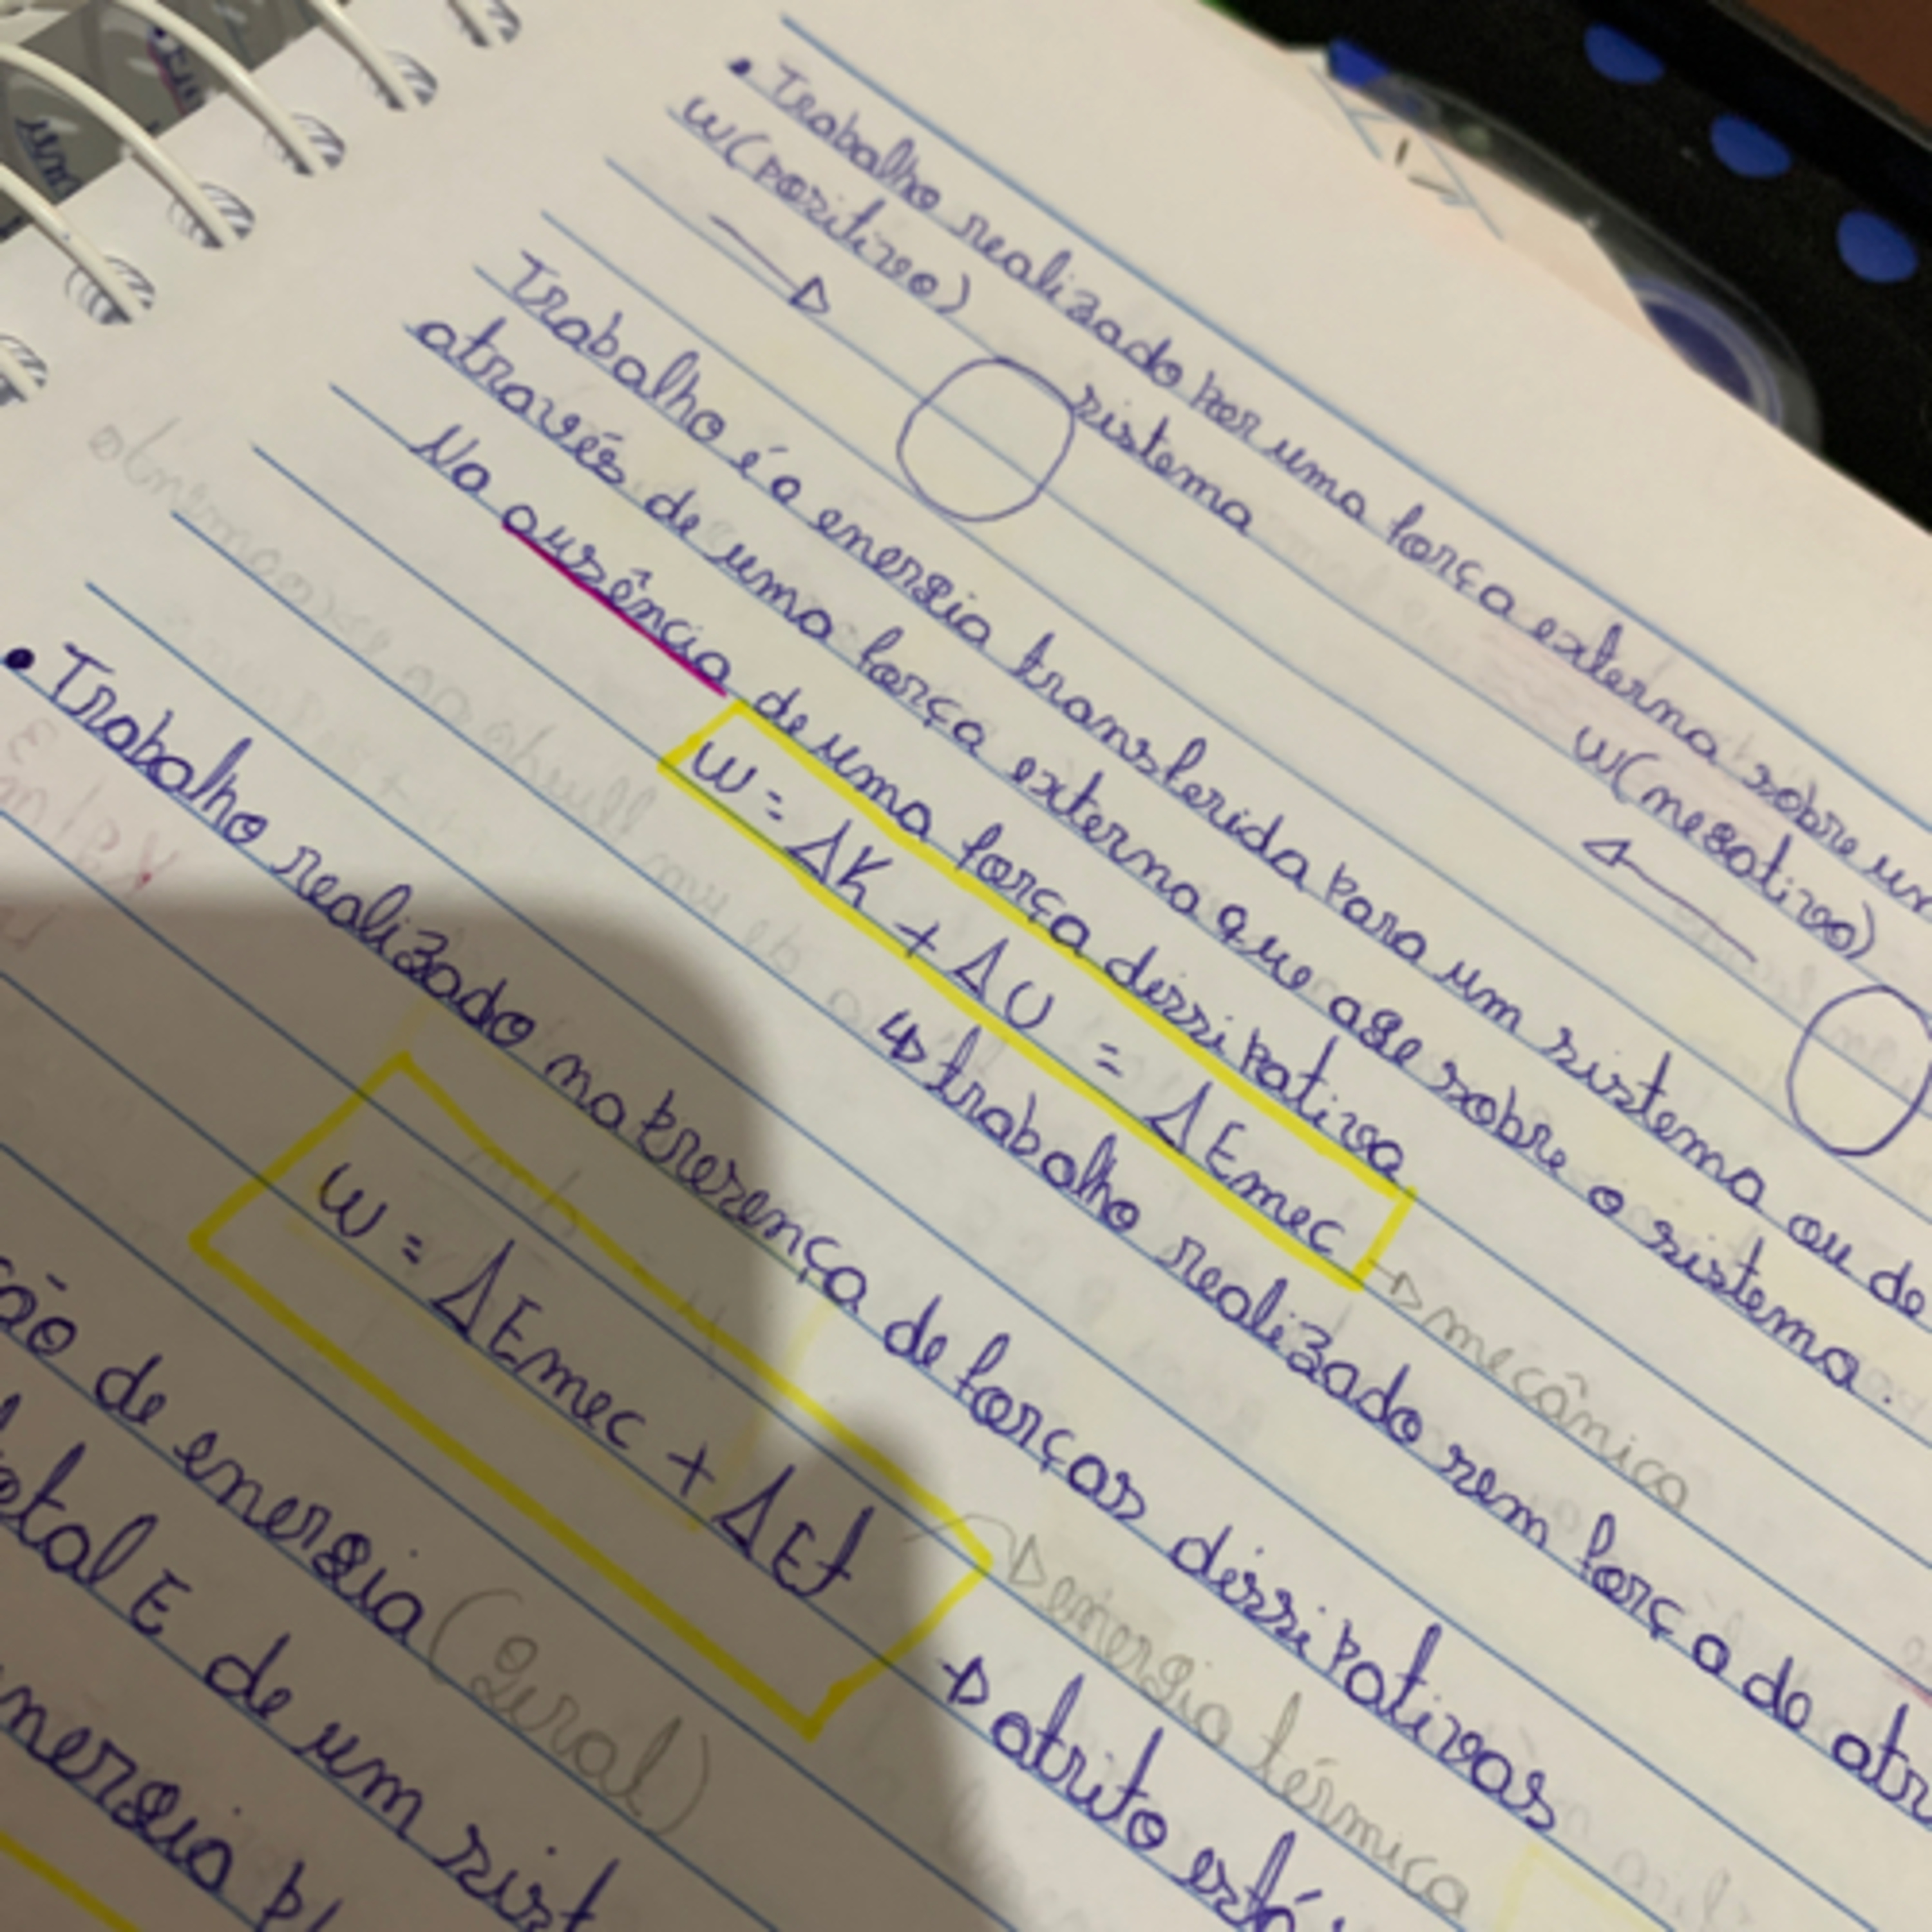 • Trabalho realizado por uma força externa sobre um
W(positivo)
sistema
W(negativo)
Trabalho é a energia transferida para um sistema ou de
através de uma força externa que age sobre o sistema.
Na ausência de uma força dissipativa
W = ΔK + ΔU = ΔEmec → mecânica
↳ trabalho realizado sem força do atr
• Trabalho realizado na presença de forças dissipativas
W = ΔEmec + ΔEt → energia térmica
→ atrito está
ção de energia (geral)
total E de um sist
energia p